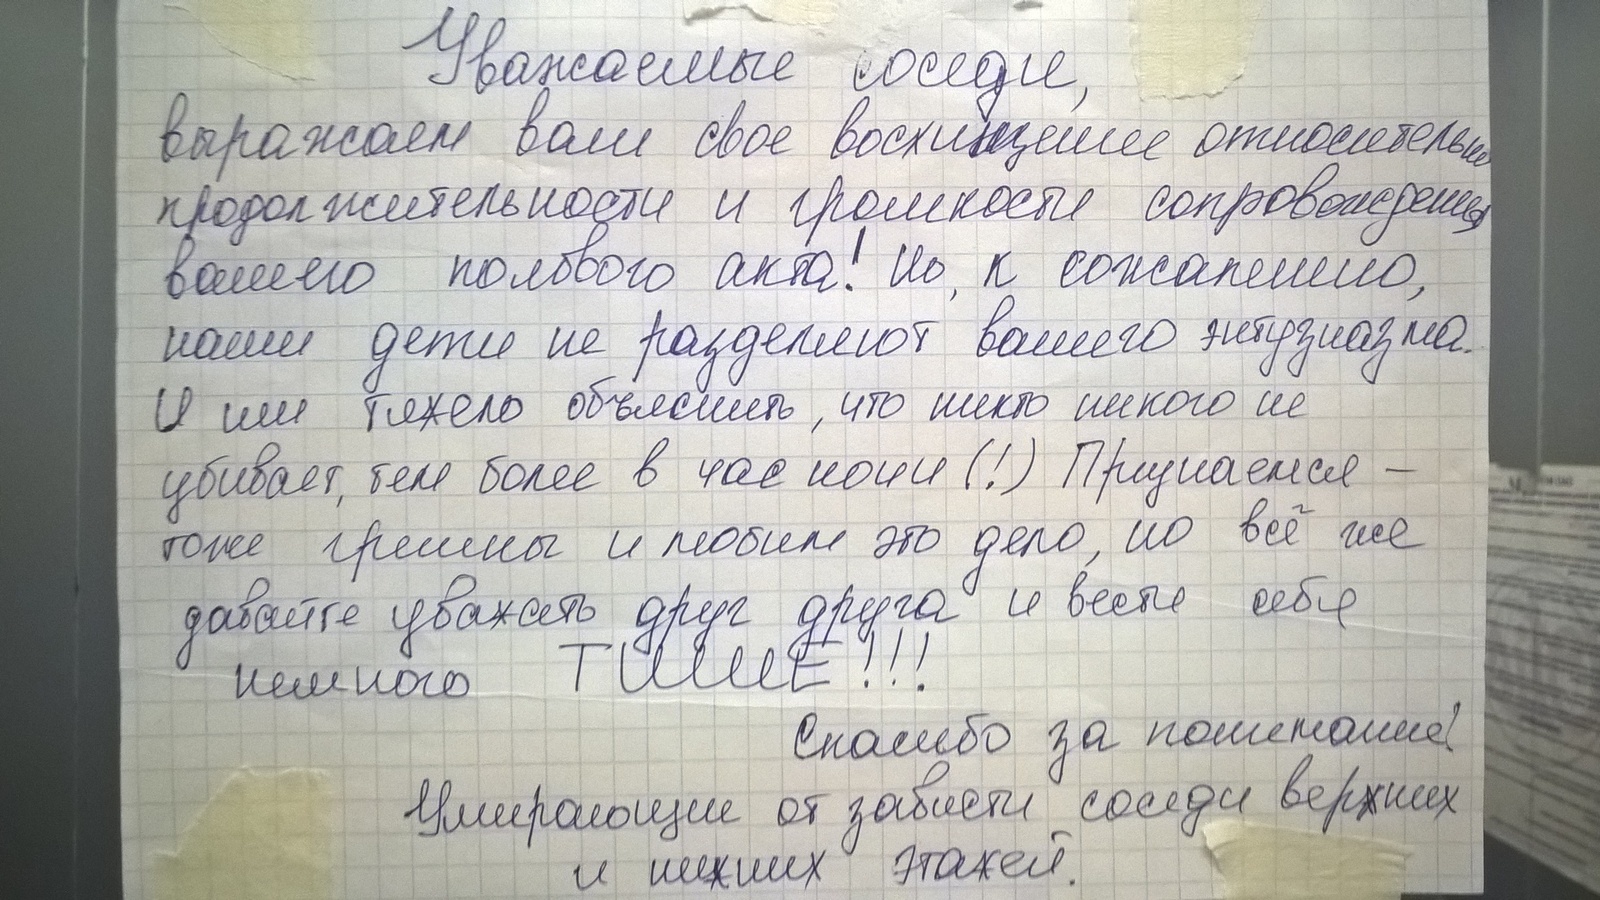 Уважаемые соседи,
выражаем вам свое восхищение относительно
продолжительности и громкости сопровождения
вашего полового акта! Но, к сожалению,
наши дети не разделяют вашего энтузиазма.
И им тяжело объяснить, что никто никого не
убивает, тем более в час ночи (!) Признаемся –
тоже грешны и любим это дело, но всё же
давайте уважать друг друга и вести себя
немного ТИШЕ!!!
Спасибо за понимание!
Умирающие от зависти соседи верхних
и нижних этажей.